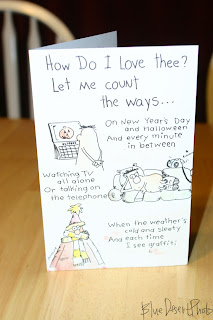 How Do I Love thee?
Let me count
the ways...
On New Year's Day
and Halloween
And every minute
in between
Watching TV
all alone
Or talking on
the telephone
When the weather's
cold and sleety
And each time
I see graffiti
BlueDesertPhoto